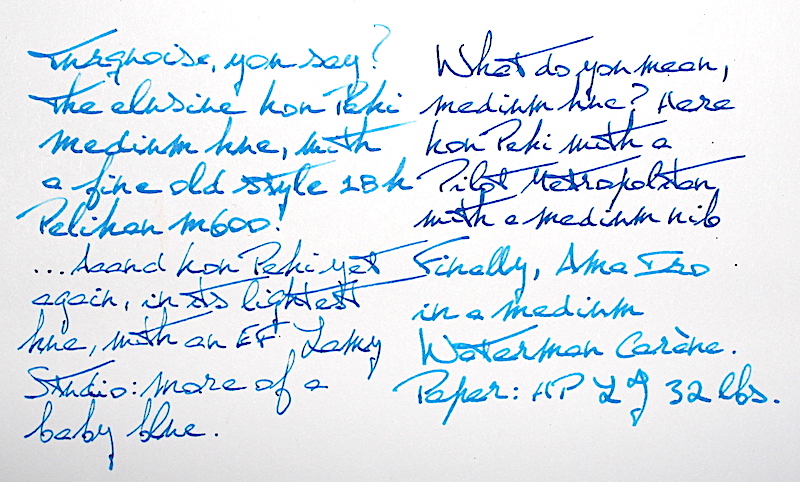 Turquoise, you say?
The elusive kon Peki
medium hue, with
a fine old style 18k
Pelikan M600!
...Aaand kon Peki yet
again, in its lightest
hue, with an EF Lamy
Studio: more of a
baby blue.
What do you mean,
medium hue? Here
kon Peki with a
Pilot Metropolitan,
with a medium nib
Finally, Ama Iro
in a medium
Waterman Carène.
Paper: HP LJ 32 lbs.